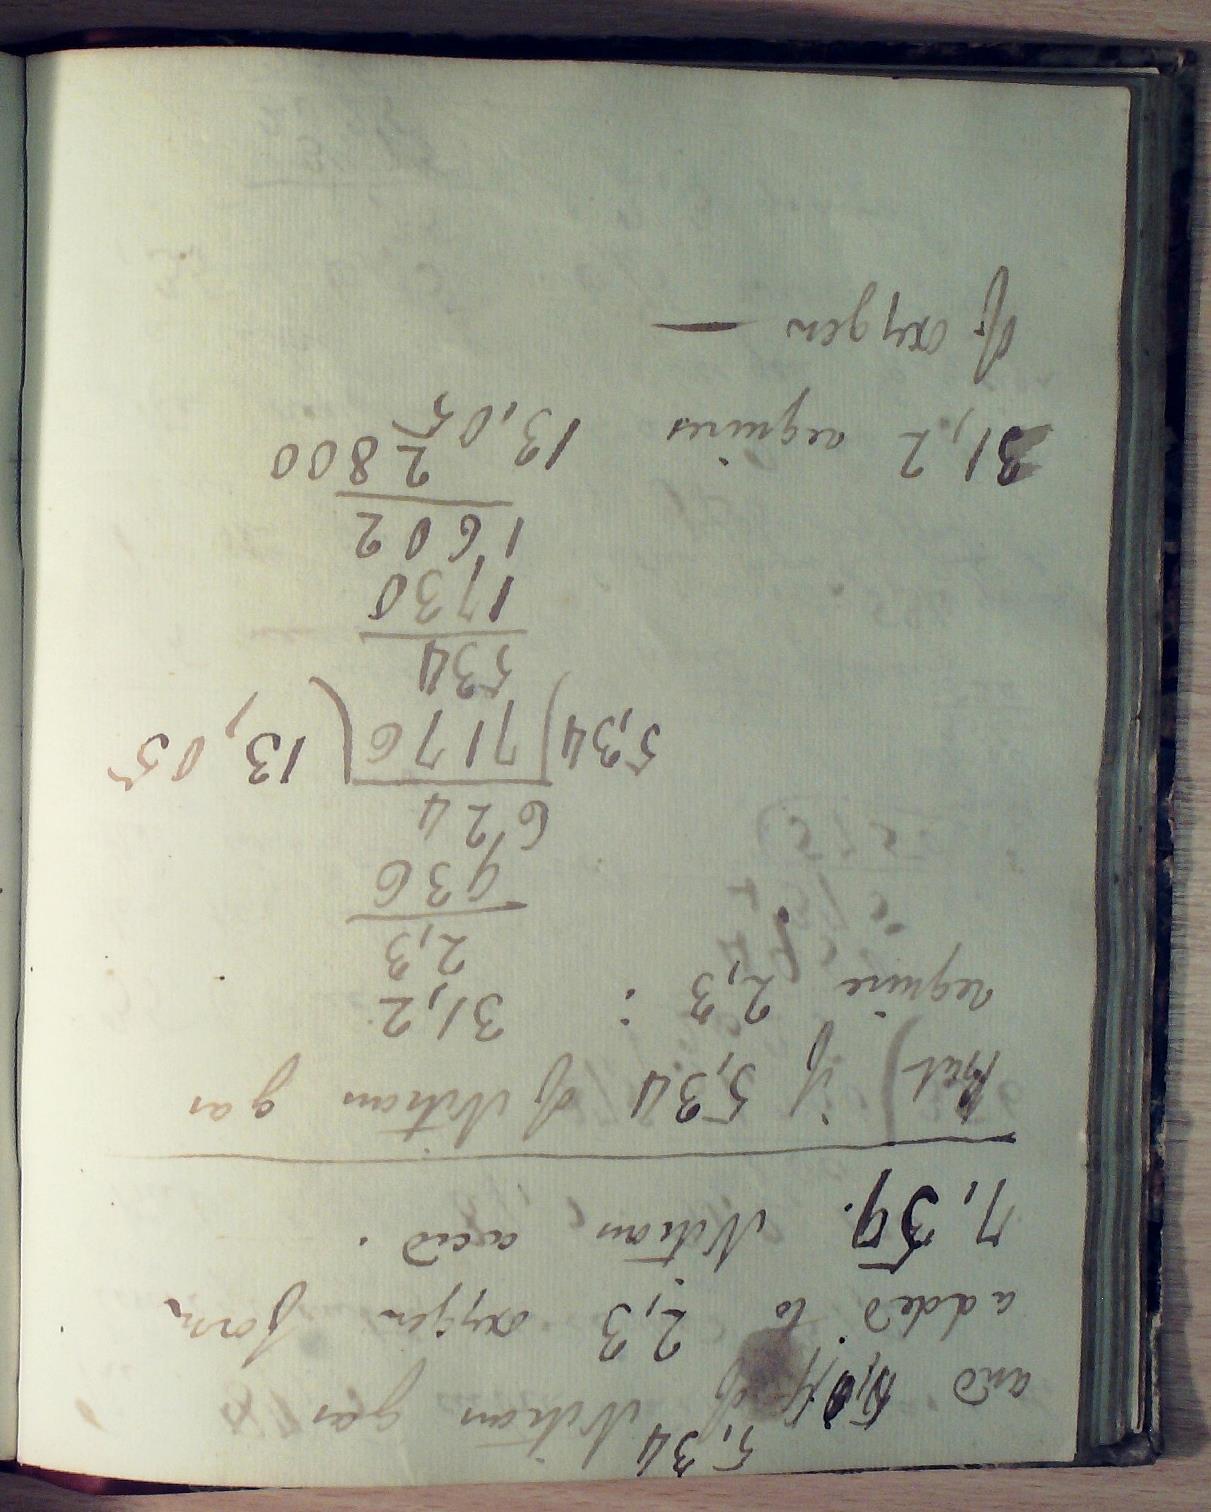 5,34
and of Nitrous gas
added to 2,3 oxygen form
7,39. Nitrous acid.
but if 5,34 of Nitrous gas
require 2,3 : 31,2
2,3
936
624
5,34) 7176 ( 13,05
534
1730
1602
2800
31,2 requires 13,05
of oxygen —